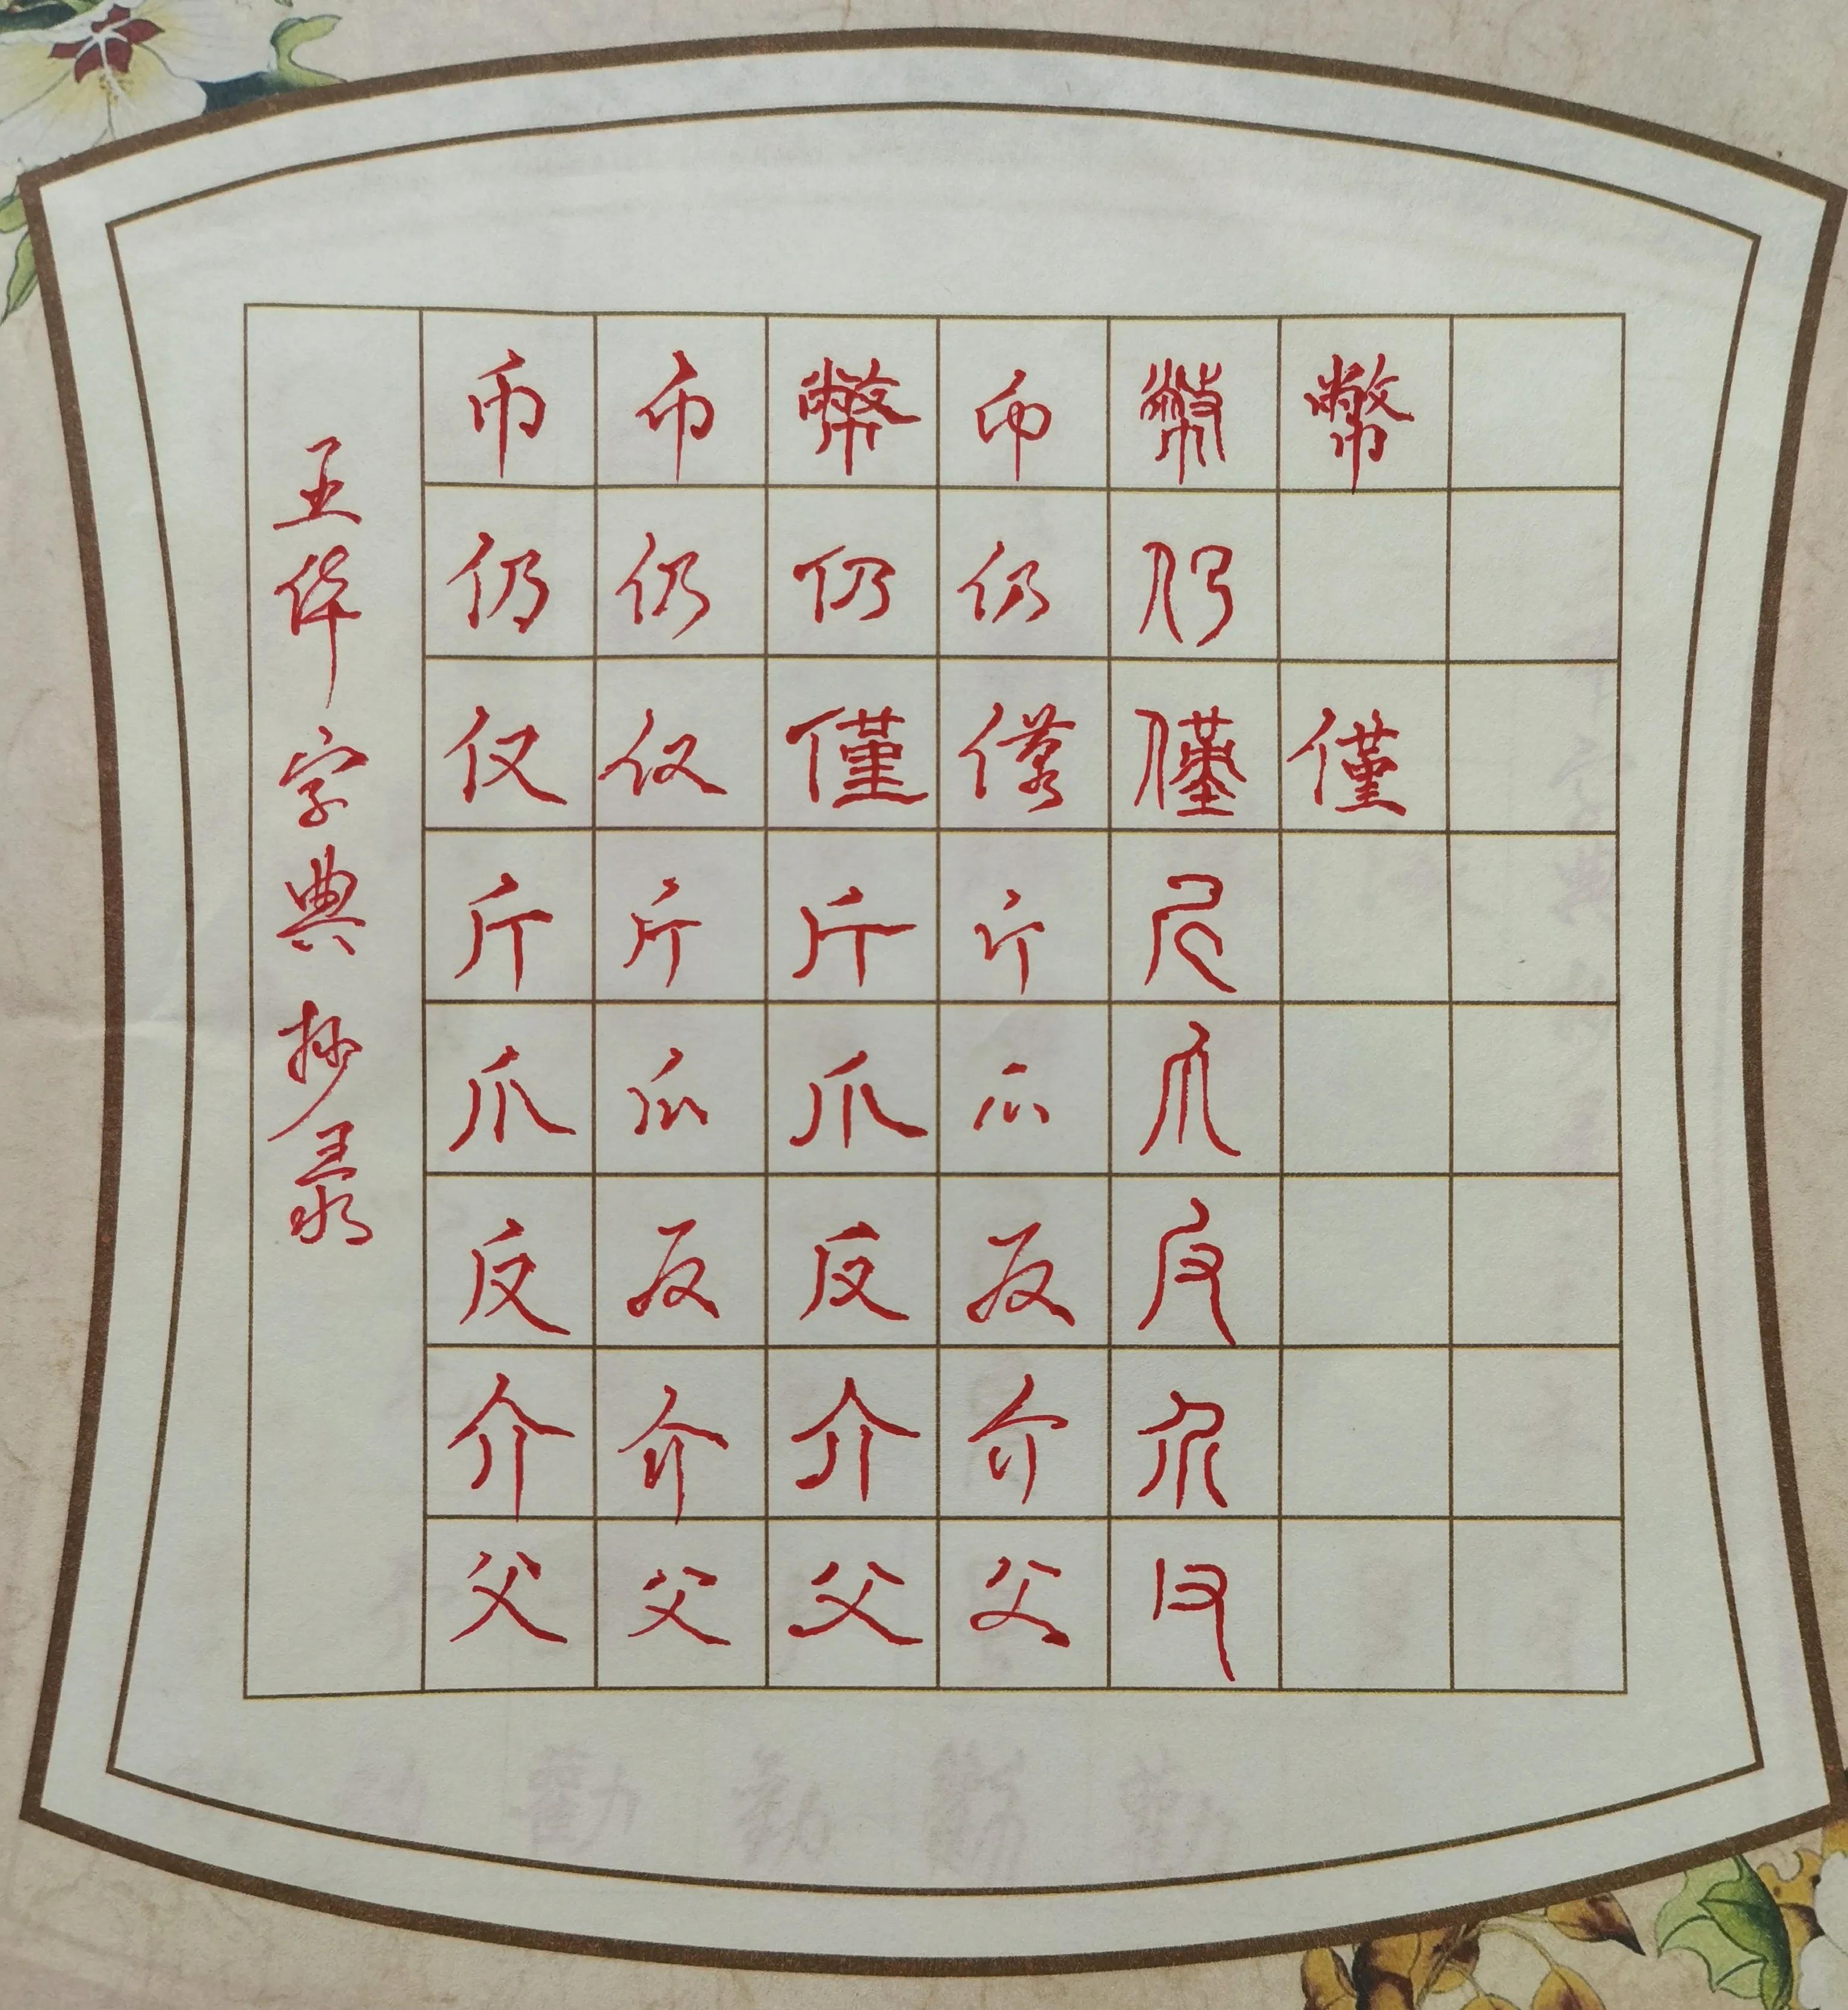 币 币 幣 币 幣 幣
仍 仍 仍 仍 仍
仅 仅 僅 僅 僅 僅
斤 斤 斤 斤 斤
爪 爪 爪 爪 爪
反 反 反 反 反
介 介 介 介 介
父 父 父 父 父
字典 抄录